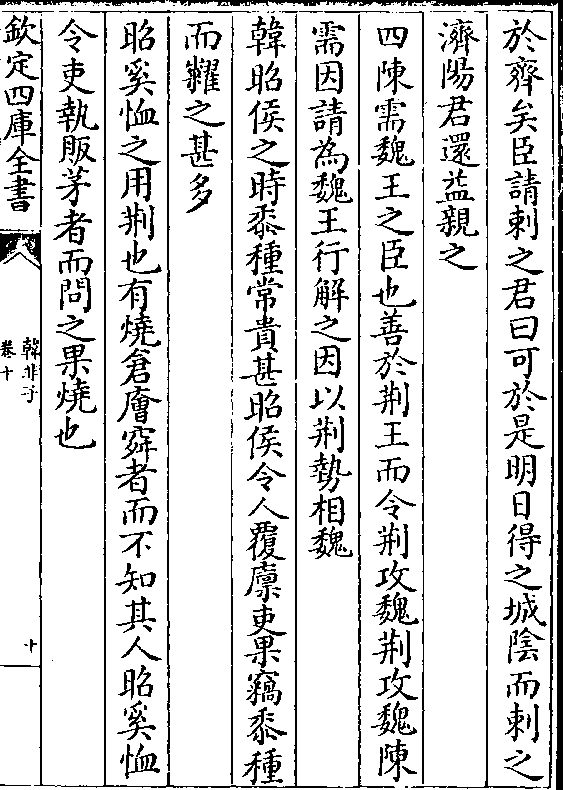 於齊矣臣請刺之君曰可於是明日得之城陰而刺之
濟陽君還益親之
四陳需魏王之臣也善於荆王而令荆攻魏荆攻魏陳
需因請為魏王行解之因以荆勢相魏
韓昭侯之時黍種常貴甚昭侯令人覆廪吏果竊黍種
而糶之甚多
昭奚恤之用荆也有燒倉廥窌者而不知其人昭奚恤
令吏執販茅者而問之果燒也
欽定四庫全書
韓非子
卷十
十